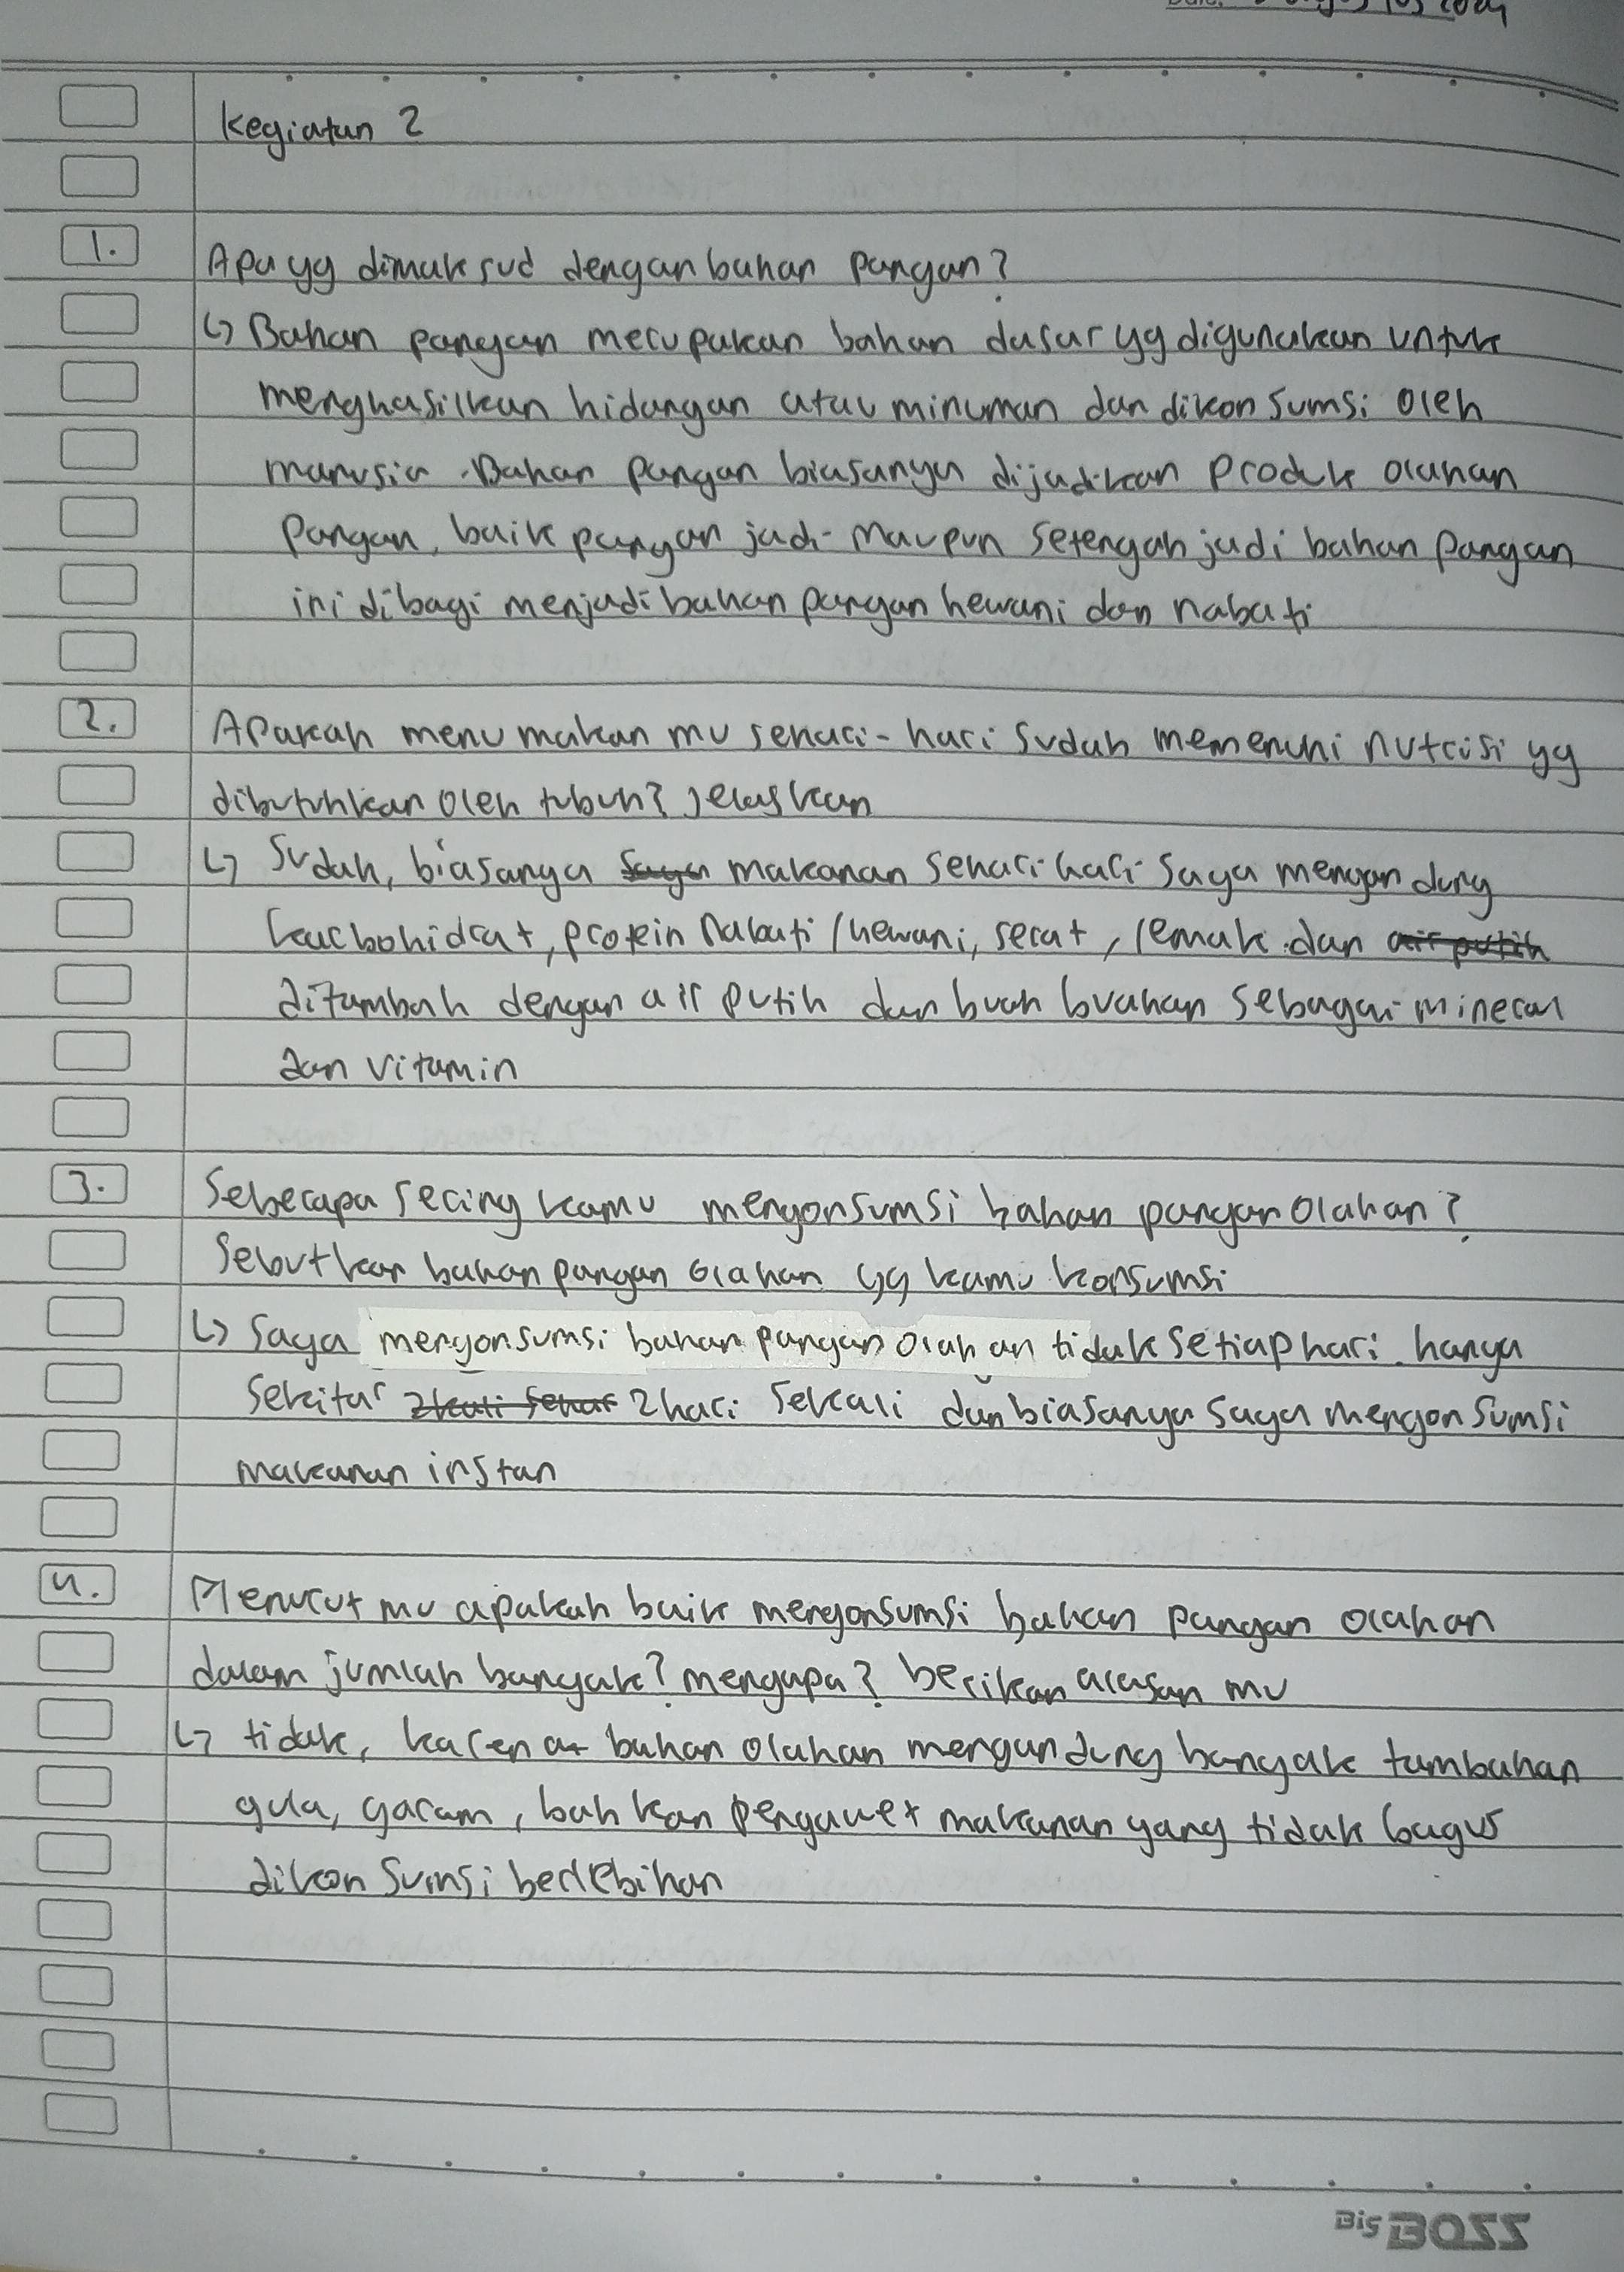 Kegiatan 2
1. Apa yg dimaksud dengan bahan pangan?
↳ Bahan pangan merupakan bahan dasar yg digunakan untuk
menghasilkan hidangan atau minuman dan dikonsumsi oleh
manusia. Bahan pangan biasanya dijadikan produk olahan
pangan, baik pangan jadi maupun setengah jadi bahan pangan
ini dibagi menjadi bahan pangan hewani dan nabati
2. Apakah menu makan mu sehari-hari sudah memenuhi nutrisi yg
dibutuhkan oleh tubuh? jelaskan
↳ Sudah, biasanya saya makanan sehari hari saya mengandung
karbohidrat, protein nabati/hewani, serat, lemak dan air putih
ditambah dengan air putih dan buah buahan sebagai mineral
dan vitamin
3. Seberapa sering kamu mengonsumsi bahan pangan olahan?
Sebutkan bahan pangan olahan yg kamu konsumsi
↳ Saya mengonsumsi bahan pangan olahan tidak setiap hari. hanya
sekitar 2 kali sehar 2 hari sekali dan biasanya saya mengonsumsi
makanan instan
4. Menurut mu apakah baik mengonsumsi bahan pangan olahan
dalam jumlah banyak? mengapa? berikan alasan mu
↳ tidak, karena bahan olahan mengandung banyak tambahan
gula, garam, bahkan pengawet makanan yang tidak bagus
dikonsumsi berlebihan
Big BOSS